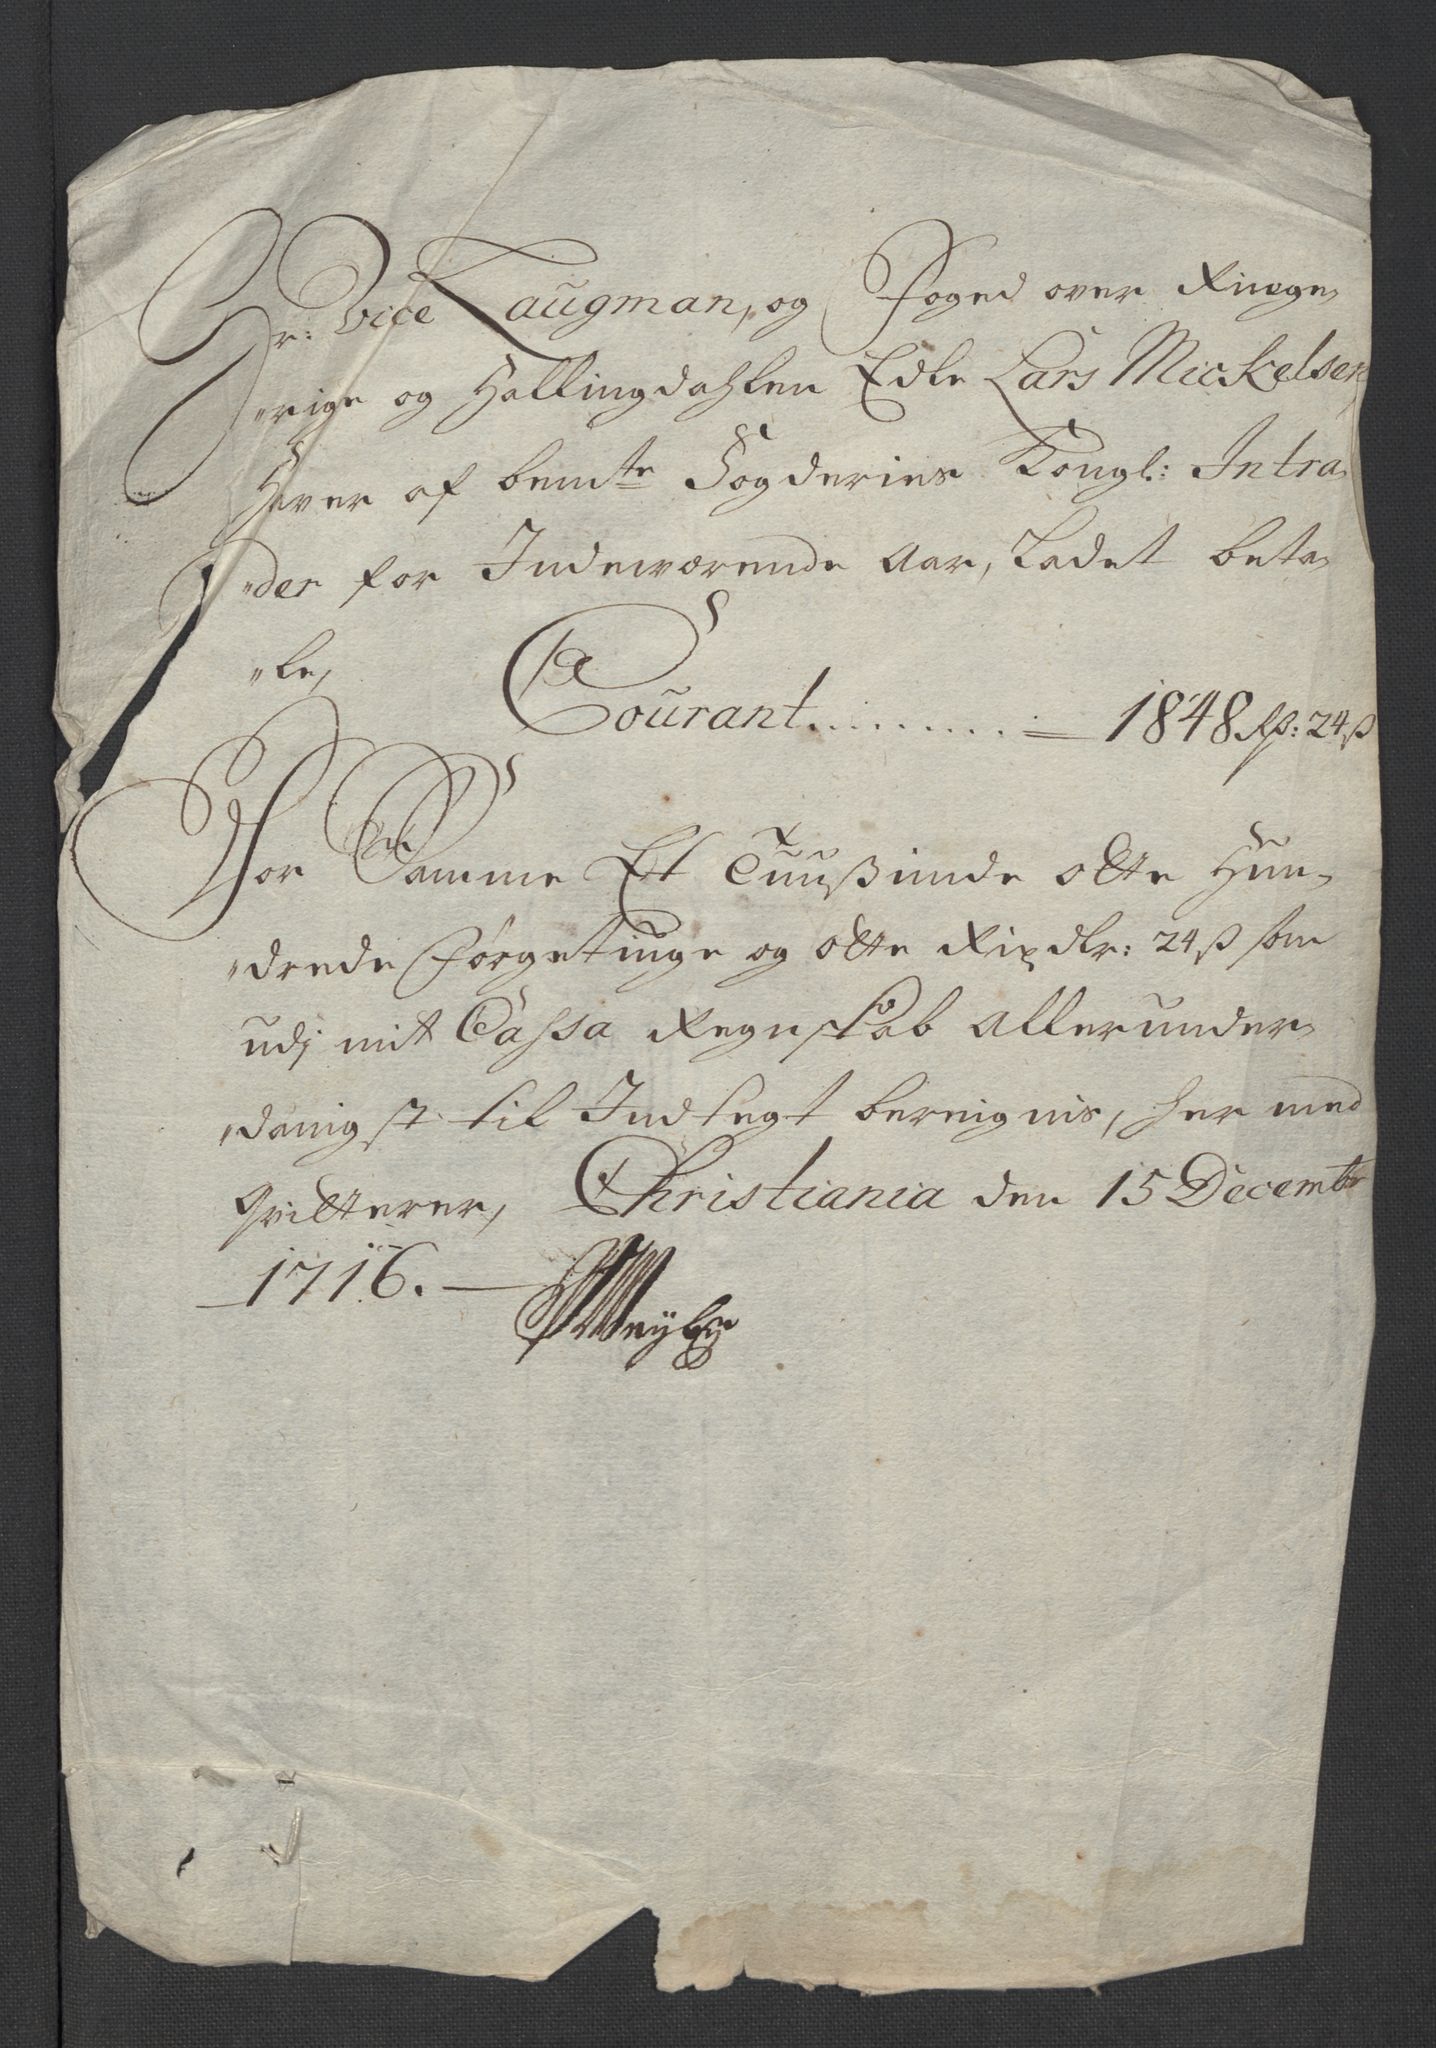 Hr: Vice Laugman, og Foged over Ringe„
„rige og Hallingdahlen Edle Lars Mickelsen,
Haver af bemte Fogderies Kongl: Intra„
„der for Indeværende Aar, Ladet beta„
„le,
Courant ......... = 1848 Rd: 24 ß
For Samme Et Tuußinde otte Hun„
„drede Førgetiuge og otte Rixdlr: 24 ß som
udj mit Cassa Regnskab allerunder„
„danigst til Indtegt beregnis, her med
Qvitterer, Christiania den 15 Decembr
1716.